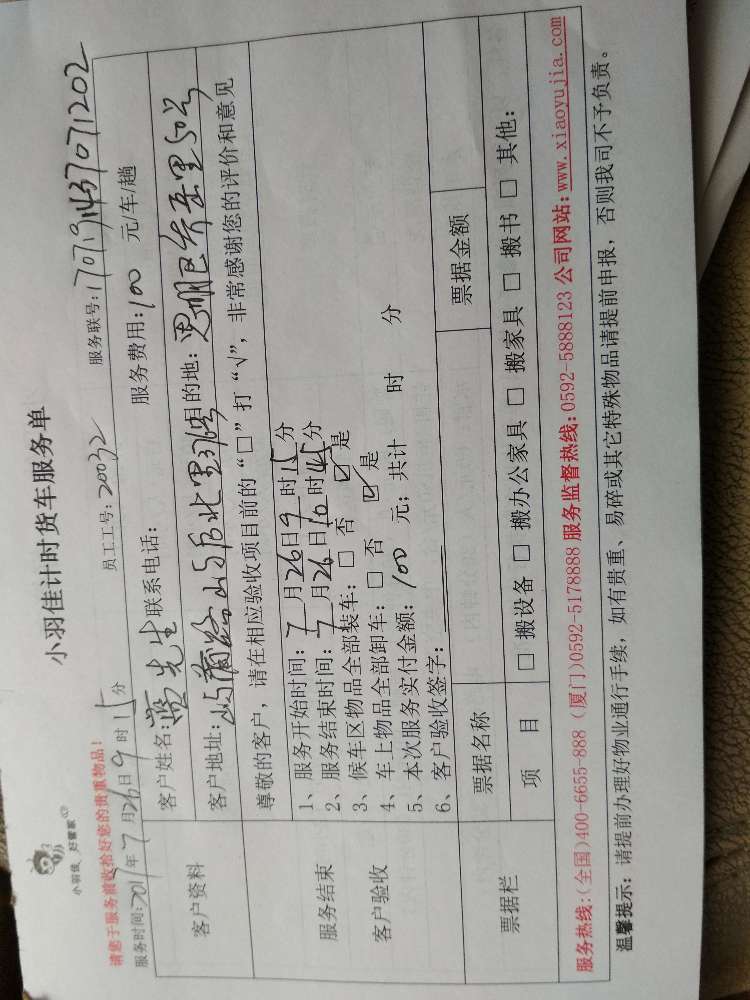 小羽佳 好管家
小羽佳计时货车服务单
请您于服务前收拾好您的贵重物品！
服务时间: 年7月26日9时15分 员工工号: 20032 服务联号:
客户资料
客户姓名: 蓝先生 联系电话: 服务费用: 100 元/车/趟
客户地址: 目的地: 思明区
服务结束
客户验收
尊敬的客户，请在相应验收项目前的“□”打“√”，非常感谢您的评价和意见
1、服务开始时间: 7月26日9时15分
2、服务结束时间: 7月26日10时45分
3、候车区物品全部装车: □ 否 ☑ 是
4、车上物品全部卸车: □ 否 ☑ 是
5、本次服务实付金额: 100 元; 共计 时 分
6、客户验收签字:
票据栏
票据名称 票据金额
项 目 □ 搬设备 □ 搬办公家具 □ 搬家具 □ 搬书 □ 其他:
服务热线:(全国)400-6655-888 (厦门)0592-5178888 服务监督热线:0592-5888123 公司网站:www.xiaoyujia.com
温馨提示: 请提前办理好物业通行手续，如有贵重、易碎或其它特殊物品请提前申报，否则我司不予负责。